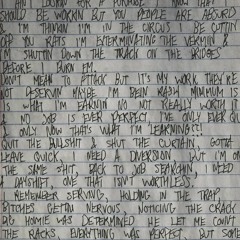 AM LOOKIN FOR A PURPOSE I KNOW THAT
SHOULD BE WORKIN BUT YOU PEOPLE ARE ABSURD
& I'M THINKIN I'M IN THE CIRCUS BE CUTTIN
OFF YOU RATS I'M EXTERMINATING THE VERMIN &
I'M SHUTTIN DOWN THE TRACK ON THE BRIDGES
BEFORE I BURN EM.
DON'T MEAN TO ATTACK BUT IT'S MY WORK THEY'RE
NOT DESERVIN MAYBE I'M BEIN RASH MINIMUM IS
IS WHAT I'M EARNIN NO NOT REALLY WORTH IT
NO JOB IS EVER PERFECT, I'VE ONLY EVER QUIT
& ONLY NOW THAT'S WHAT I'M LEARNING!!
QUIT THE BULLSHIT & SHUT THE CURTAIN, GOTTA
LEAVE QUICK, I NEED A DIVERSION, BUT I'M ON
THE SAME SHIT, BACK TO JOB SEARCHIN, I NEED
A DAYSHIFT, ONE THAT ISN'T WORTHLESS,
I REMEMBER SERVING, HOLDING IN THE TRAP,
BITCHES GETTIN NERVOUS, NOTICING THE CRACK
BIG HOMIE WAS DETERMINED HE LET ME COUNT
THE RACKS EVERYTHING WAS PERFECT, BUT SOME